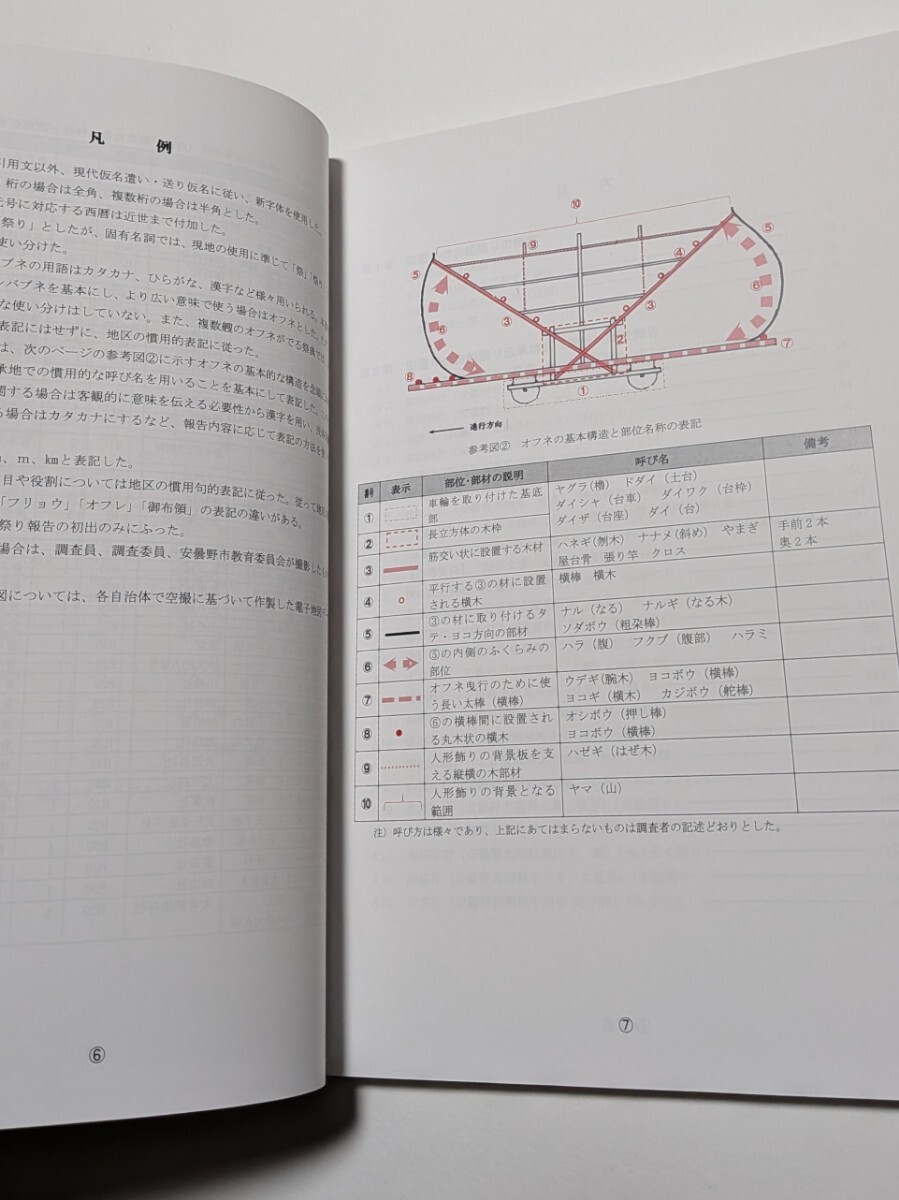 凡 例
引用文以外、現代仮名遣い・送り仮名に従い、新字体を使用した。
桁の場合は全角、複数桁の場合は半角とした。
元号に対応する西暦は近世まで付加した。
祭り」としたが、固有名詞では、現地の使用に準じて「祭」
使い分けた。
ブネの用語はカタカナ、ひらがな、漢字など様々用いられる。
ンバブネを基本にし、より広い意味で使う場合はオフネとした。
な使い分けはしていない。また、複数艘のオフネがでる祭典では、
表記にはせずに、地区の慣用的表記に従った。
は、次のページの参考図②に示すオフネの基本的な構造を念頭に
承地での慣用的な呼び名を用いることを基本にして表記した。
関する場合は客観的に意味を伝える必要性から漢字を用い、
る場合はカタカナにするなど、報告内容に応じて表記の方法を
、m、㎞と表記した。
目や役割については地区の慣用句的表記に従った。従って
「フリョウ」「オフレ」「御布領」の表記の違いがある。
祭り報告の初出のみにふった。
場合は、調査員、調査委員、安曇野市教育委員会が撮影した
図については、各自治体で空撮に基づいて作製した電子地図
⑥
⑩
⑤ ⑨ ④ ⑤
③ ③
⑥ ② ⑥
⑧ ① ⑦
進行方向
参考図② オフネの基本構造と部位名称の表記
表示 部位・部材の説明 呼び名 備考
① 車輪を取り付けた基底部 ヤグラ(櫓) ドダイ(土台)
ダイシャ(台車) ダイワク(台枠)
② 長立方体の木枠 ダイザ(台座) ダイ(台)
③ 筋交い状に設置する木材 ハネギ(刎木) ナナメ(斜め) やまぎ 手前2本
屋台骨 張り竿 クロス 奥2本
④ 平行する③の材に設置される横木 横棒 横木
⑤ ③の材に取り付けるタテ・ヨコ方向の部材 ナル(なる) ナルギ(なる木)
ソダボウ(粗朶棒)
⑥ ⑤の内側のふくらみの部位 ハラ(腹) フクブ(腹部) ハラミ
⑦ オフネ曳行のために使う長い太棒(横棒) ウデギ(腕木) ヨコボウ(横棒)
ヨコギ(横木) カジボウ(舵棒)
⑧ ⑥の横棒間に設置される丸木状の横木 オシボウ(押し棒)
ヨコボウ(横棒)
⑨ 人形飾りの背景板を支える縦横の木部材 ハゼギ(はぜ木)
⑩ 人形飾りの背景となる範囲 ヤマ(山)
注)呼び方は様々であり、上記にあてはまらないものは調査者の記述どおりとした。
⑦